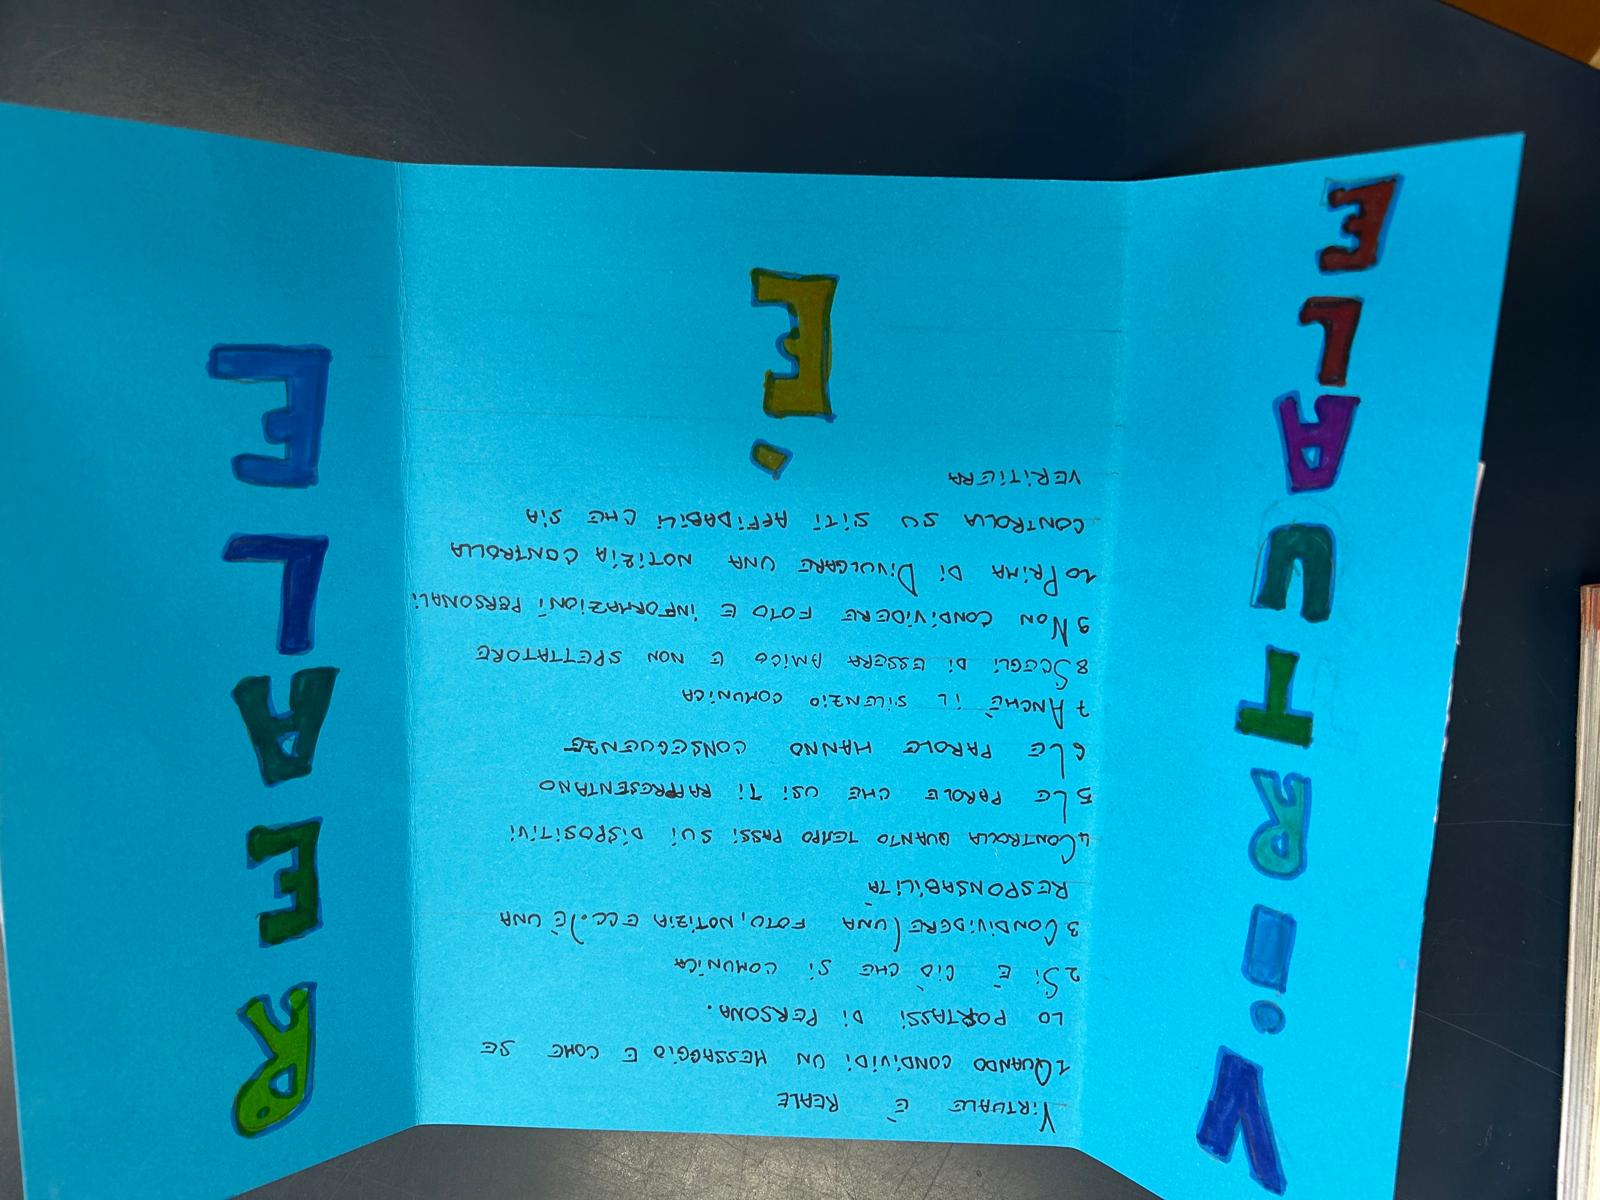 ViRTUALE
È
REALE
ViRTUALE È REALE
1 QUANDO CONDIVIDI UN MESSAGGIO E COME SE
LO PORTASSI DI PERSONA.
2 Si È CIÒ CHE SI COMUNICA
3 CONDIVIDERE (UNA FOTO, NOTIZIA ECC.) È UNA
RESPONSABILITÀ
4 CONTROLLA QUANTO TEMPO PASSI SUI DISPOSITIVI
5 LE PAROLE CHE USI TI RAPPRESENTANO
6 LE PAROLE HANNO CONSEGUENZE
7 ANCHE IL SILENZIO COMUNICA
8 SCEGLI DI ESSERA AMICO E NON SPETTATORE
9 NON CONDIVIDERE FOTO E INFORMAZIONI PERSONALI
10 PRIMA DI DIVULGARE UNA NOTIZIA CONTROLLA
CONTROLLA SU SITI AFFIDABILI CHE SIA
VERITIERA